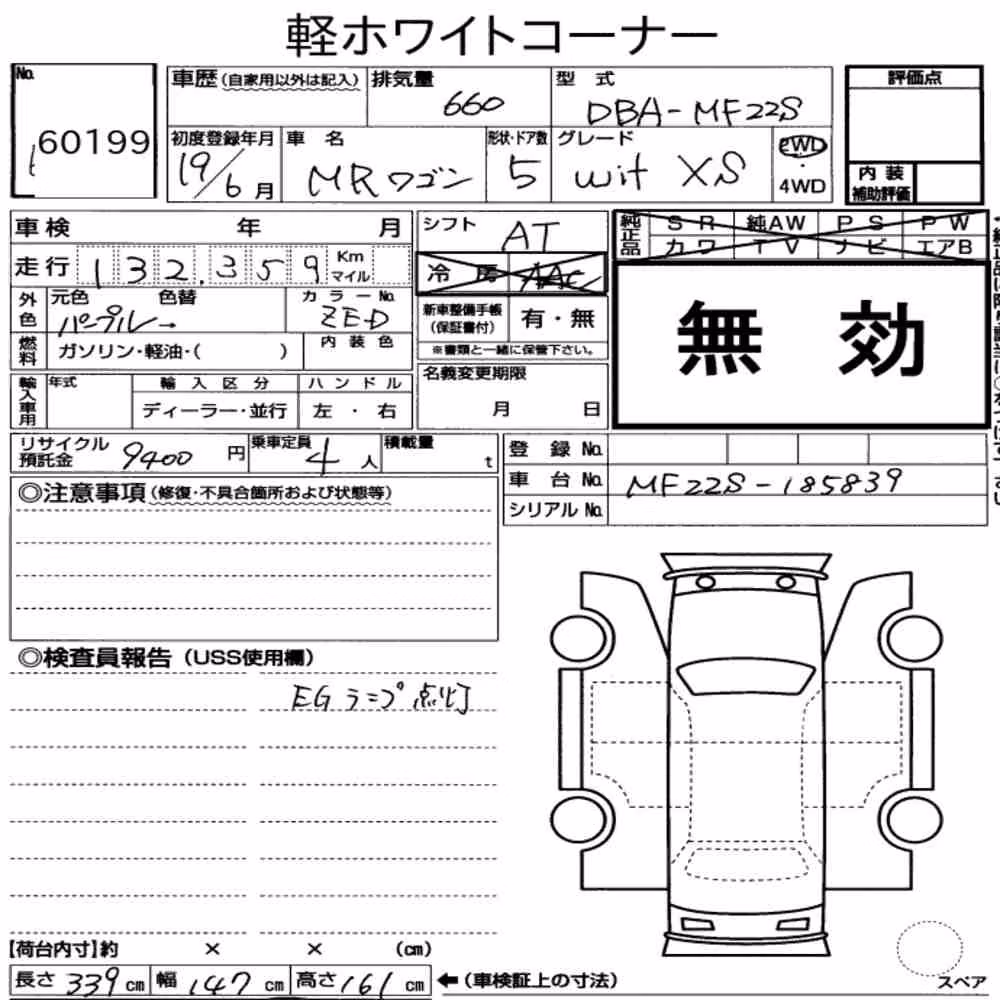 軽ホワイトコーナー
No. 60199
車歴(自家用以外は記入) 排気量 660 型式 DBA-MF22S 評価点
初度登録年月 19/6月 車名 MRワゴン 形状・ドア数 5 グレード wit XS 2WD・4WD
内装補助評価
車検 年 月 シフト AT 純正品 SR 純AW PS PW
カワ TV ナビ エアB
走行 132,359 Km マイル 冷房 AAC
無効
外色 元色 パープル→ 色替 カラーNo. ZED 新車整備手帳(保証書付) 有・無
燃料 ガソリン・軽油・( ) 内装色 ※書類と一緒に保管下さい。
輸入車用 年式 輸入区分 ハンドル 名義変更期限
ディーラー・並行 左・右 月 日
リサイクル預託金 9400円 乗車定員 4人 積載量 t 登録No.
車台No. MF22S-185839
シリアルNo.
◎注意事項(修復・不具合箇所および状態等)
◎検査員報告(USS使用欄)
EGランプ点灯
【荷台内寸】約 × × (cm)
長さ339cm 幅147cm 高さ161cm ←(車検証上の寸法)
スペア